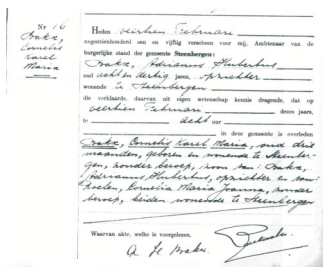 Nr 16
Brakx,
Cornelis
Karel
Maria
Heden veertien Februari
negentienhonderd een en vijftig verscheen voor mij, Ambtenaar van de
burgerlijke stand der gemeente Steenbergen:
Brakx, Adrianus Hubertus,
oud acht en dertig jaren, opzichter
wonende te Steenbergen
die verklaarde, daarvan uit eigen wetenschap kennis dragende, dat op
veertien Februari dezes jaars,
te acht uur
in deze gemeente is overleden
Brakx, Cornelis Karel Maria, oud drie
maanden, geboren en wonende te Steenber-
gen, zonder beroep, zoon van: Brakx,
Adrianus Hubertus, opzichter en van:
Roelen, Cornelia Maria Joanna, zonder
beroep, beiden wonende te Steenbergen
Waarvan akte, welke is voorgelezen.
A. H. Brakx.